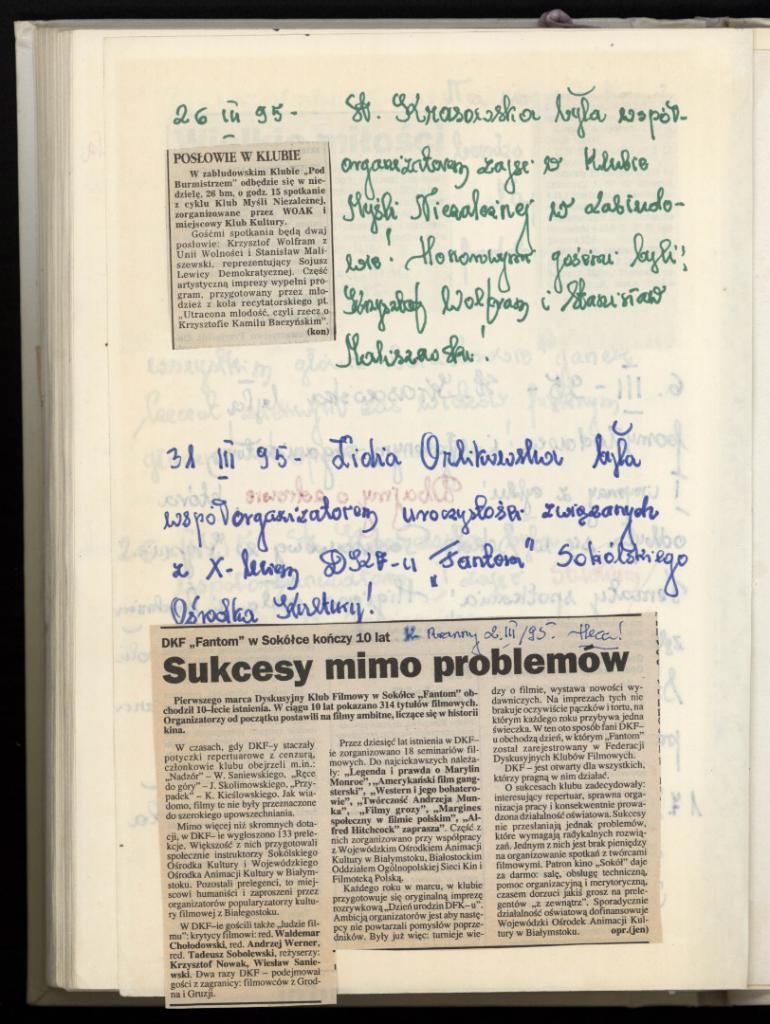 26 III 95 - St. Krasowska była współ-
organizatorem zajęć w Klubie
Myśli Niezależnej w Zabłudo-
wie! Honorowymi gośćmi byli:
Krzysztof Wolfram i Stanisław
Maliszewski!
POSŁOWIE W KLUBIE
W zabłudowskim Klubie „Pod
Burmistrzem" odbędzie się w nie-
dzielę, 26 bm. o godz. 15 spotkanie
z cyklu Klub Myśli Niezależnej,
zorganizowane przez WOAK i
miejscowy Klub Kultury.
Gośćmi spotkania będą dwaj
posłowie: Krzysztof Wolfram z
Unii Wolności i Stanisław Mali-
szewski, reprezentujący Sojusz
Lewicy Demokratycznej. Część
artystyczną imprezy wypełni pro-
gram, przygotowany przez mło-
dzież z koła recytatorskiego pt.
„Utracona młodość, czyli rzecz o
Krzysztofie Kamilu Baczyńskim".
(kon)
31 III 95 - Lidia Orlikowska była
współorganizatorem uroczystości związanych
z X-leciem DKF-u „Fantom" Sokólskiego
Ośrodka Kultury!
DKF „Fantom" w Sokółce kończy 10 lat
K. Poranny 2.III/95.
Sukcesy mimo problemów
Pierwszego marca Dyskusyjny Klub Filmowy w Sokółce „Fantom" ob-
chodził 10-lecie istnienia. W ciągu 10 lat pokazano 314 tytułów filmowych.
Organizatorzy od początku postawili na filmy ambitne, liczące się w historii
kina.
W czasach, gdy DKF-y staczały
potyczki repertuarowe z cenzurą,
członkowie klubu obejrzeli m.in.:
„Nadzór" – W. Saniewskiego, „Ręce
do góry" – J. Skolimowskiego, „Przy-
padek" – K. Kieślowskiego. Jak wia-
domo, filmy te nie były przeznaczone
do szerokiego upowszechniania.
Mimo więcej niż skromnych dota-
cji, w DKF-ie wygłoszono 133 prele-
kcje. Większość z nich przygotowali
społecznie instruktorzy Sokólskiego
Ośrodka Kultury i Wojewódzkiego
Ośrodka Animacji Kultury w Białym-
stoku. Pozostali prelegenci, to miej-
scowi humaniści i zaproszeni przez
organizatorów popularyzatorzy kultu-
ry filmowej z Białegostoku.
W DKF-ie gościli także „ludzie fil-
mu": krytycy filmowi: red. Waldemar
Chołodowski, red. Andrzej Werner,
red. Tadeusz Sobolewski, reżyserzy:
Krzysztof Nowak, Wiesław Sanie-
wski. Dwa razy DKF – podejmował
gości z zagranicy: filmowców z Grod-
na i Gruzji.
Przez dziesięć lat istnienia w DKF-
ie zorganizowano 18 seminariów fil-
mowych. Do najciekawszych należa-
ły: „Legenda i prawda o Marylin
Monroe", „Amerykański film gang-
sterski", „Western i jego bohatero-
wie", „Twórczość Andrzeja Mun-
ka", „Filmy grozy", „Margines
społeczny w filmie polskim", „Al-
fred Hitchcock" zaprasza". Część z
nich zorganizowano przy współpracy
z Wojewódzkim Ośrodkiem Animacji
Kultury w Białymstoku, Białostockim
Oddziałem Ogólnopolskiej Sieci Kin i
Filmoteką Polską.
Każdego roku w marcu, w klubie
przygotowuje się oryginalną imprezę
rozrywkową „Dzień urodzin DFK–u".
Ambicją organizatorów jest aby nastę-
pcy nie powtarzali pomysłów poprze-
dników. Były już więc: turnieje wie-
dzy o filmie, wystawa nowości wy-
dawniczych. Na imprezach tych nie
brakuje oczywiście pączków i tortu, na
którym każdego roku przybywa jedna
świeczka. W ten oto sposób fani DKF–
u obchodzą dzień, w którym „Fantom"
został zarejestrowany w Federacji
Dyskusyjnych Klubów Filmowych.
DKF – jest otwarty dla wszystkich,
którzy pragną w nim działać.
O sukcesach klubu zadecydowały:
interesujący repertuar, sprawna orga-
nizacja pracy i konsekwentnie prowa-
dzona działalność oświatowa. Sukcesy
nie przesłaniają jednak problemów,
które wymagają radykalnych rozwią-
zań. Jednym z nich jest brak pieniędzy
na organizowanie spotkań z twórcami
filmowymi. Patron kino „Sokół" daje
za darmo: salę, obsługę techniczną,
pomoc organizacyjną i merytoryczną,
czasem dorzuci jakiś grosz na prele-
gentów „z zewnątrz". Sporadycznie
działalność oświatową dofinansowuje
Wojewódzki Ośrodek Animacji Kul-
tury w Białymstoku.
opr.(jen)